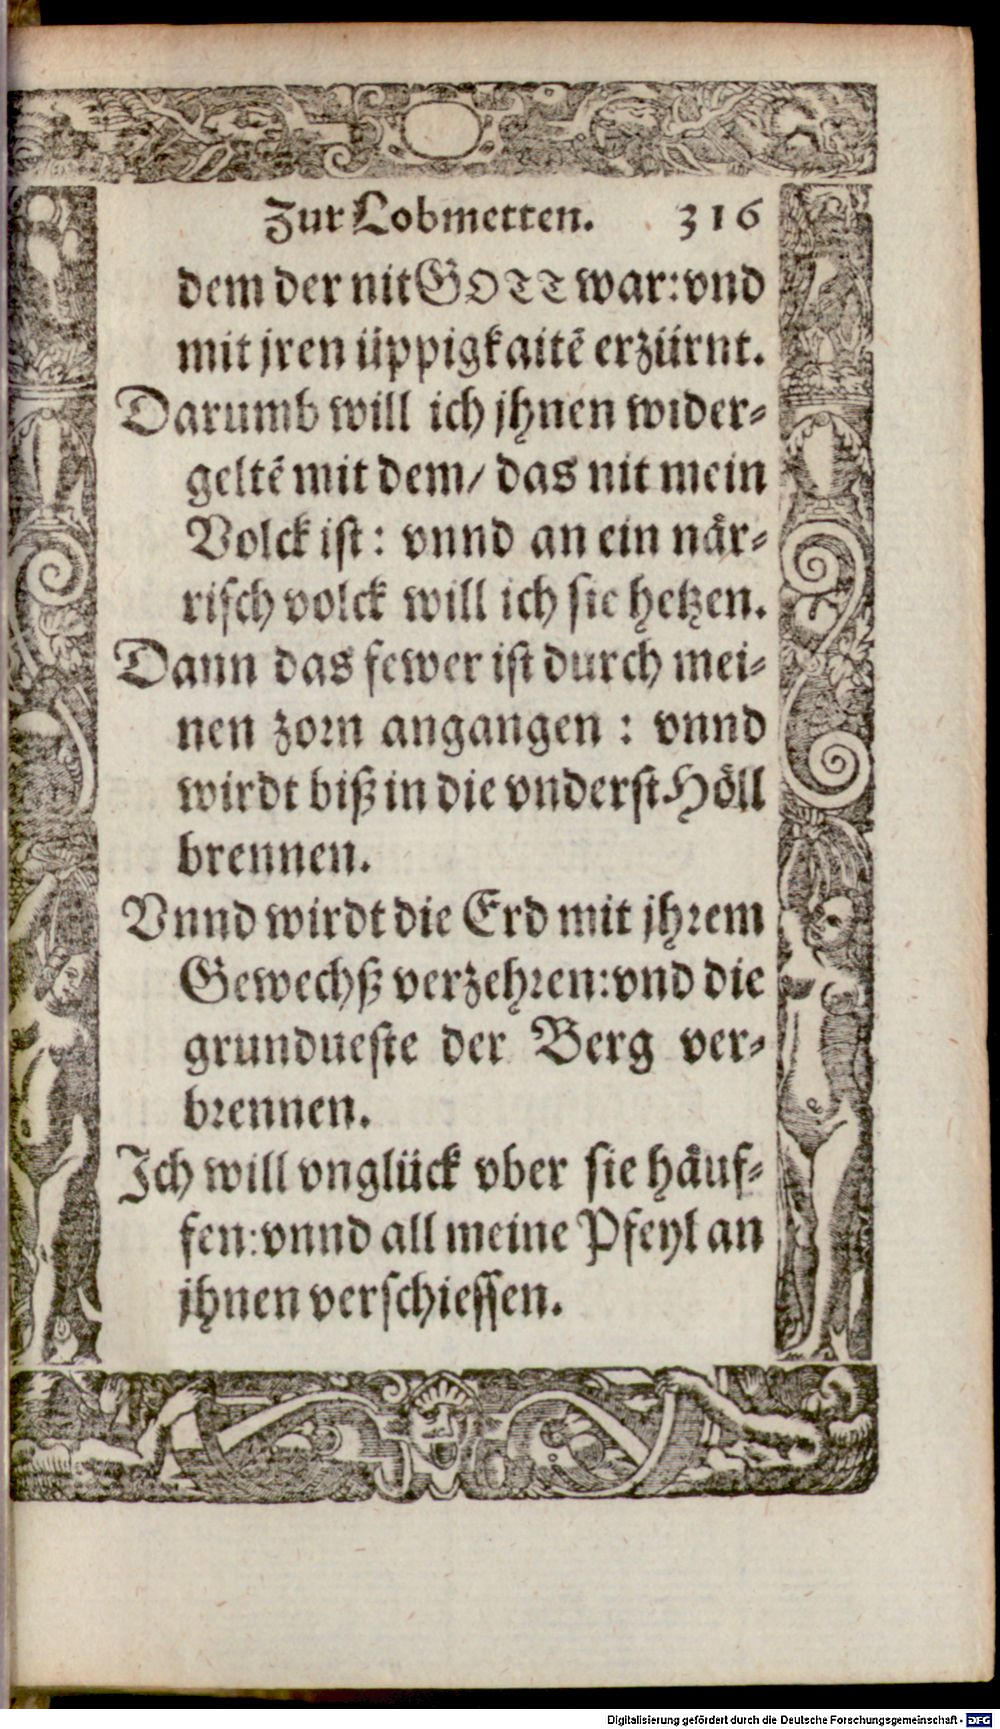 Zur Lobmetten. 316
dem der nit GOTT war: vnd
mit jren üppigkaitē erzürnt.
Darumb will ich jhnen wider⸗
geltē mit dem/ das nit mein
Volck ist: vnnd an ein när⸗
risch volck will ich sie hetzen.
Dann das fewer ist durch mei⸗
nen zorn angangen : vnnd
wirdt biß in die vnderst Höll
brennen.
Vnnd wirdt die Erd mit jhrem
Gewechß verzehren: vnd die
grundueste der Berg ver⸗
brennen.
Ich will vnglück vber sie häuf⸗
fen: vnnd all meine Pfeyl an
jhnen verschiessen.
Digitalisierung gefördert durch die Deutsche Forschungsgemeinschaft - DFG